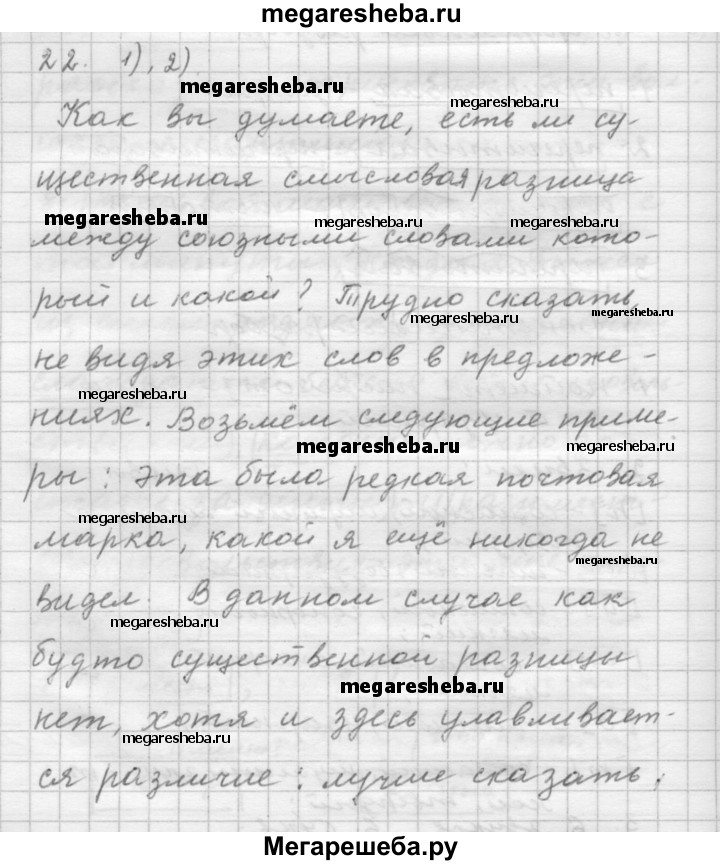 megaresheba.ru
22. 1), 2)
megaresheba.ru
megaresheba.ru
Как вы думаете, есть ли су-
щественная смысловая разница
megaresheba.ru
megaresheba.ru
megaresheba.ru
между союзными словами кото-
рый и какой? Трудно сказать,
megaresheba.ru
megaresheba.ru
не видя этих слов в предложе-
megaresheba.ru
ниях. Возьмём следующие приме-
megaresheba.ru
megaresheba.ru
ры: Эта была редкая почтовая
megaresheba.ru
марка, какой я ещё никогда не
megaresheba.ru
видел. В данном случае как
megaresheba.ru
будто существенной разницы
megaresheba.ru
нет, хотя и здесь улавливает-
megaresheba.ru
ся различие: лучше сказать:
Мегарешеба.ру